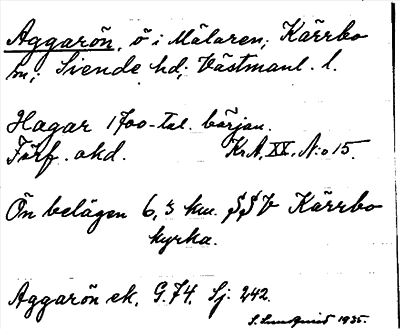 Aggarön, ö i Mälaren; Kärrbo
sn; Siende hd; Västmanl. l.
Hagar 1700-tal. början.
Förf. okd. KrA, XX, N:o 15.
Ön belägen 6,3 km. SSV Kärrbo
kyrka.
Aggarön ek. G.74. Sj: 242.
S. Lundquist 1935.